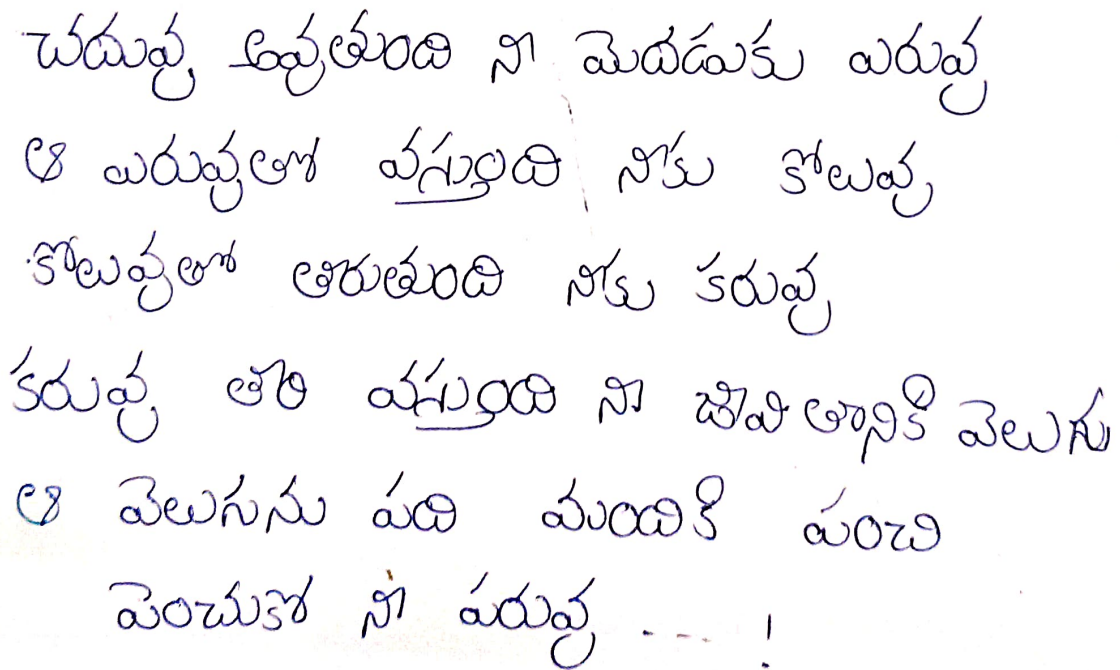 చదువు అవుతుంది నీ మెదడుకు ఎరువు
ఆ ఎరువుతో వస్తుంది నీకు కోలువు
కోలువుతో తీరుతుంది నీకు కరువు
కరువు తీరి వస్తుంది నీ జీవితానికి వెలుగు
ఆ వెలుగును పది మందికి పంచి
పెంచుకో నీ పరువు . . . . !